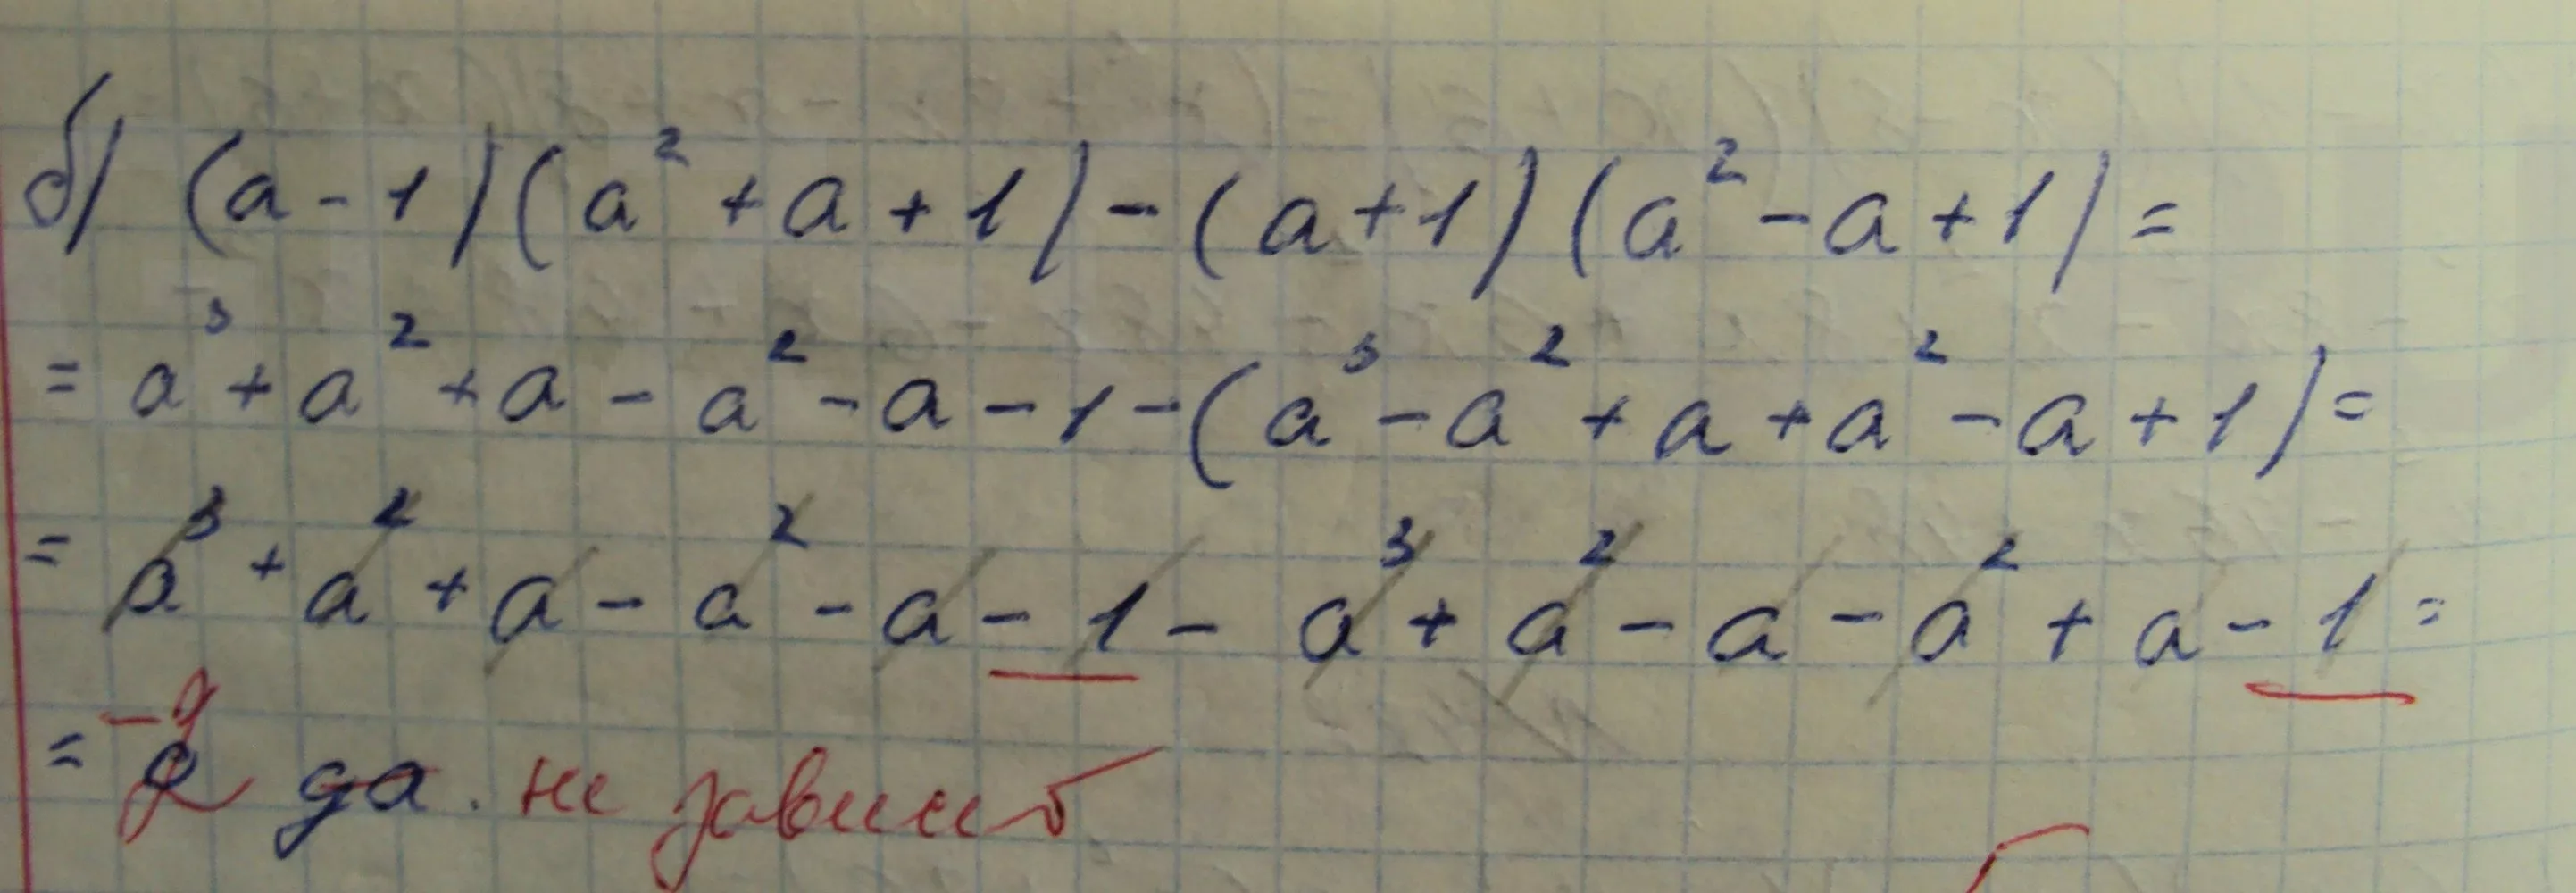 б) (a - 1)(a² + a + 1) - (a + 1)(a² - a + 1) =
= a³ + a² + a - a² - a - 1 - (a³ - a² + a + a² - a + 1) =
= a³ + a² + a - a² - a - 1 - a³ + a² - a - a² + a - 1 =
= -2 да. не зависит